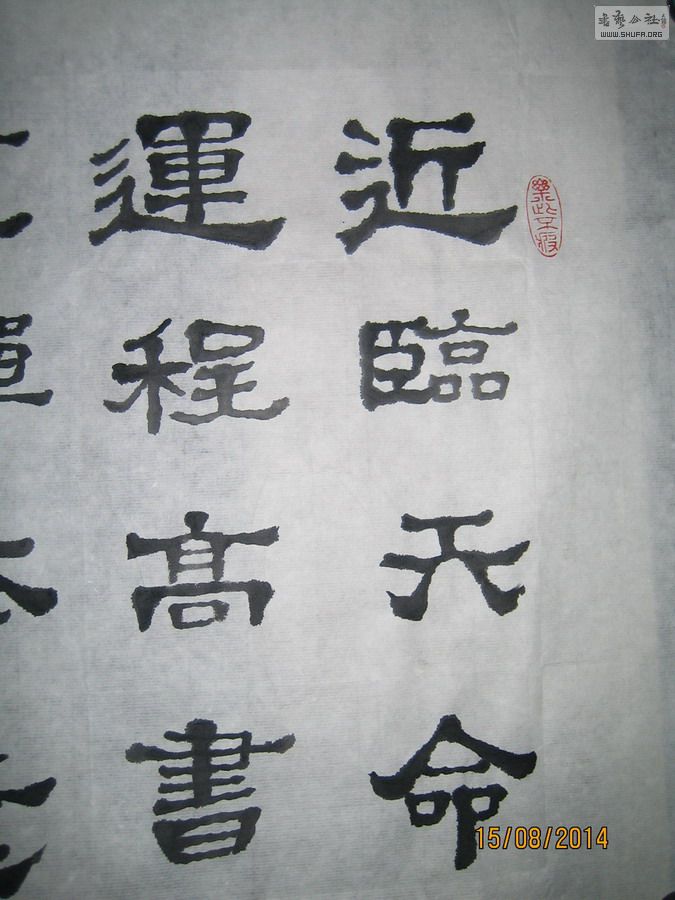 近臨天命
運程高書
樂此不疲
書藝公社
WWW.SHUFA.ORG
15/08/2014